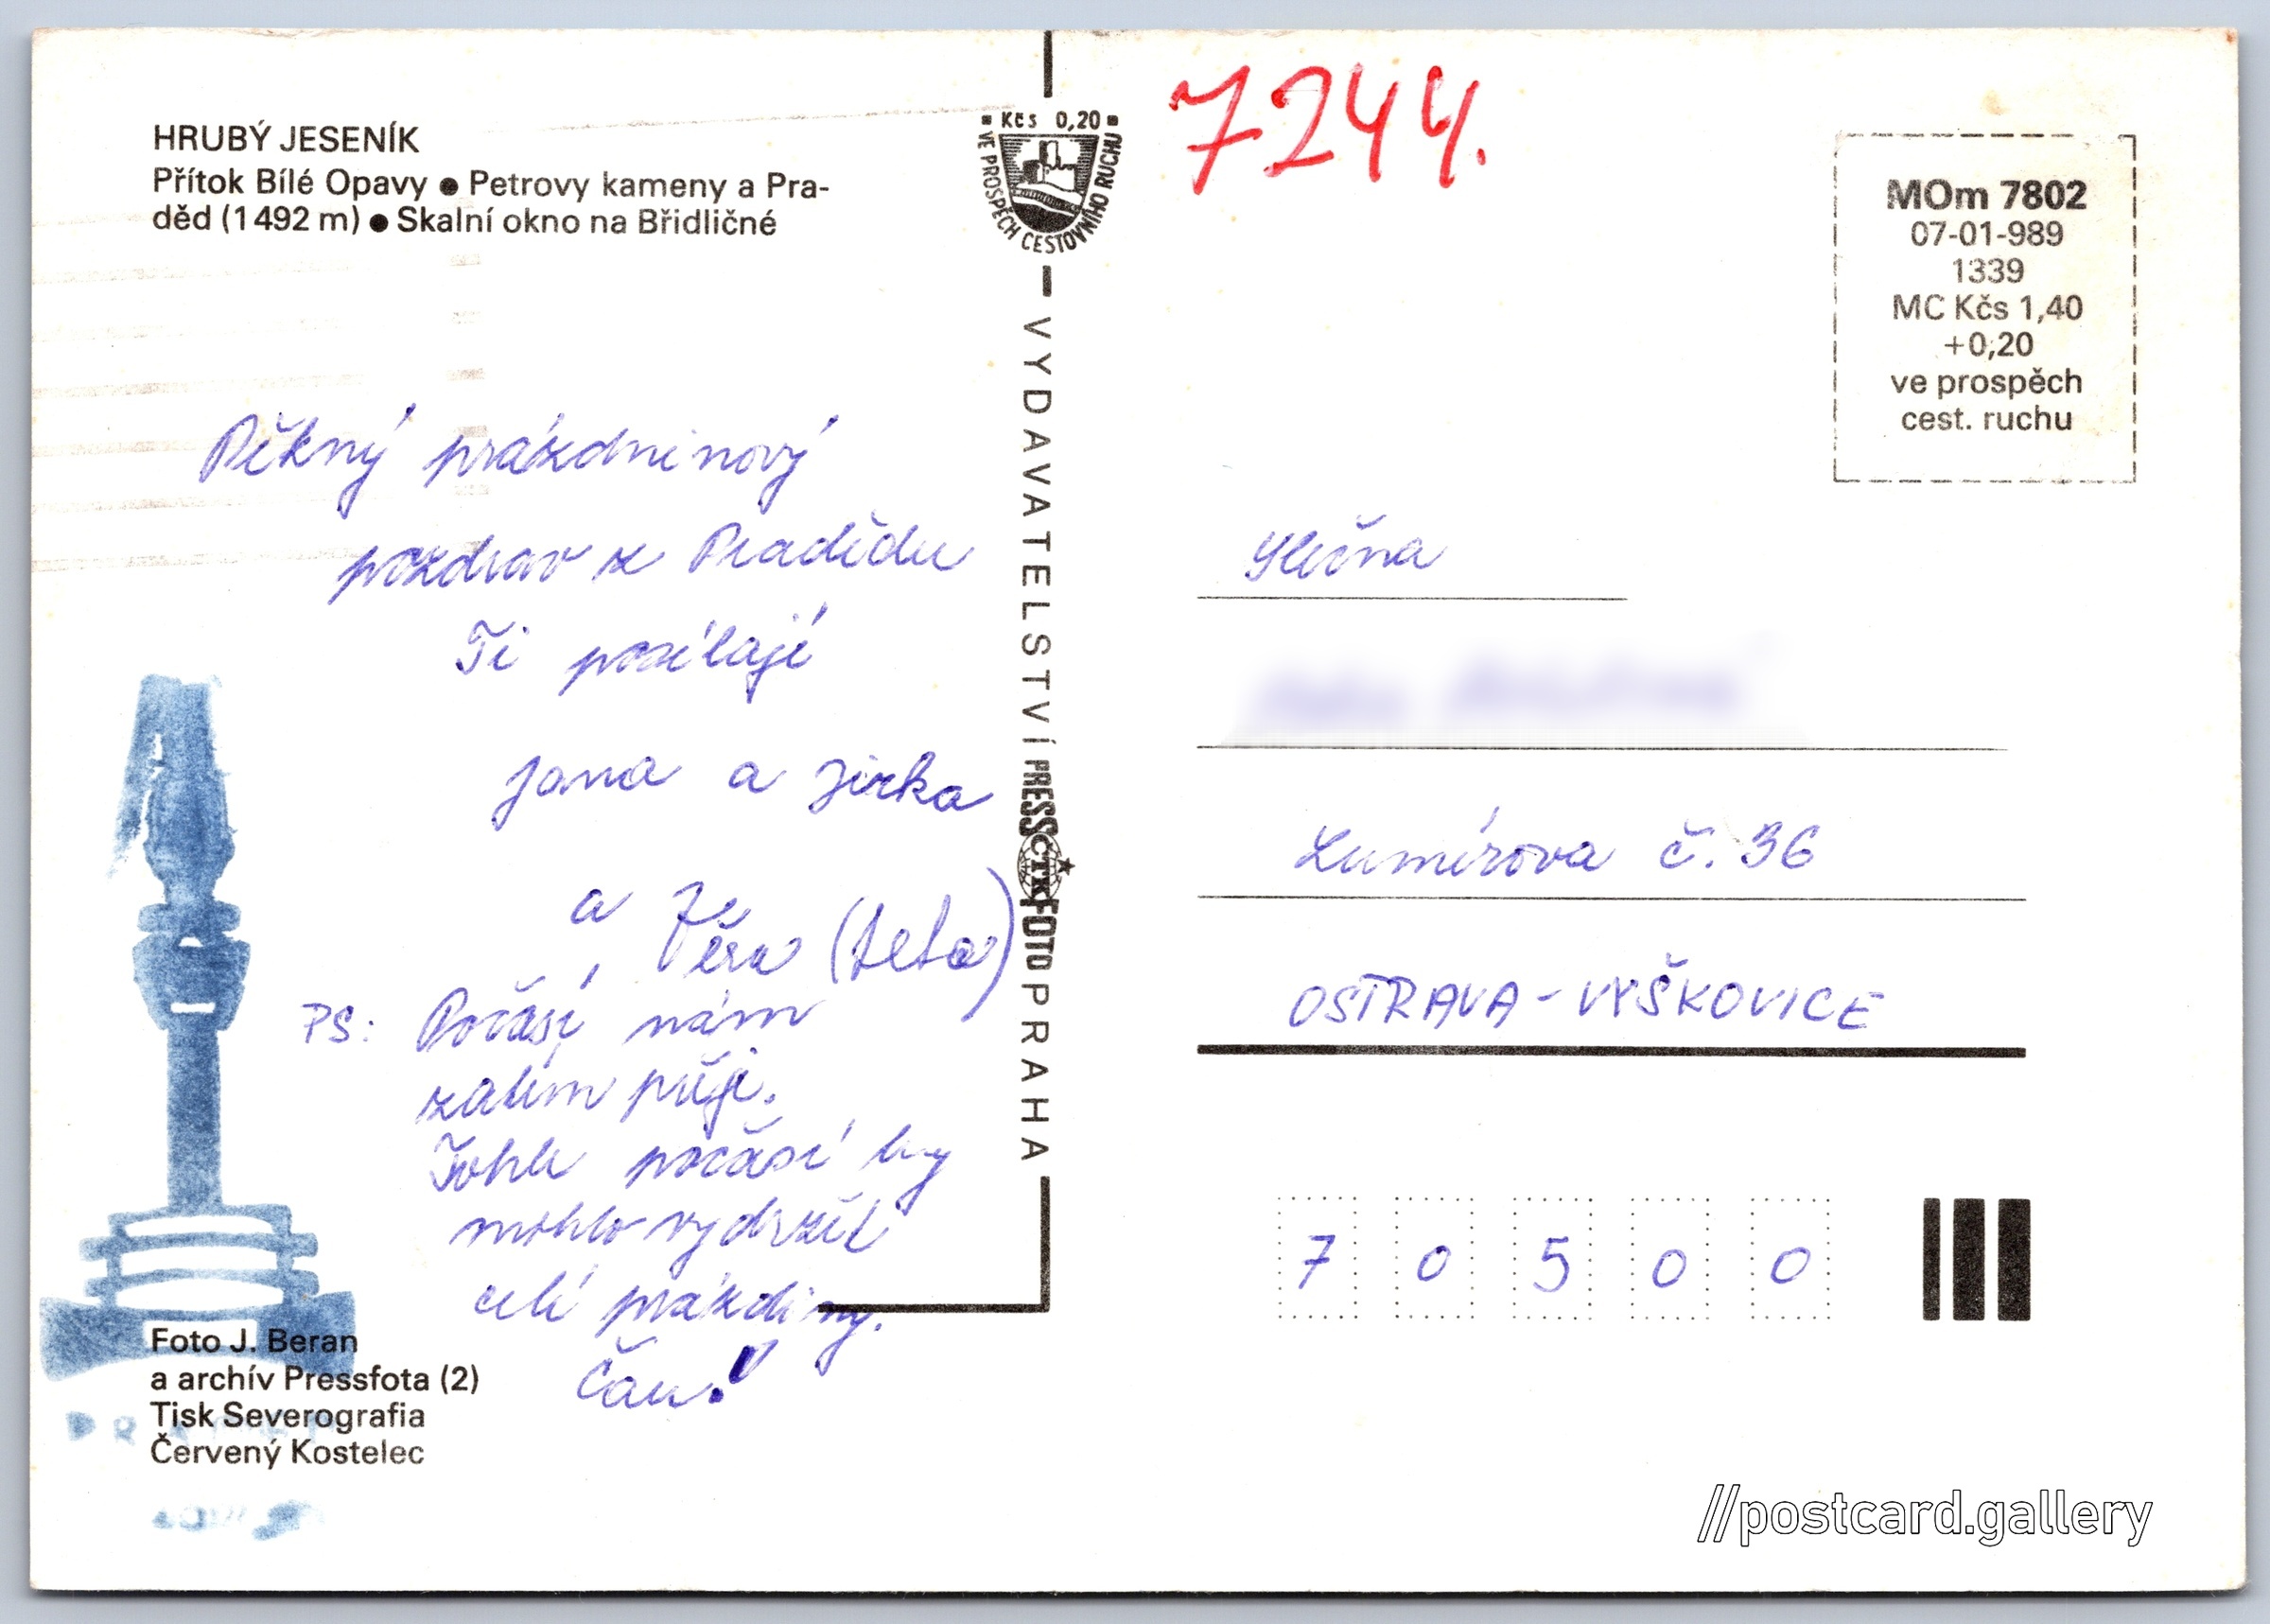 HRUBÝ JESENÍK
Přítok Bílé Opavy ● Petrovy kameny a Pra-
děd (1492 m) ● Skalní okno na Břidličné
Pěkný prázdninový
pozdrav z Pradědu
Ti posílají
Jana a Jirka
a Věra (teta)
PS: Počasí nám
zatím přeje.
Tohle počasí by
mohlo vydržet
celé prázdniny.
Čau!
Foto J. Beran
a archív Pressfota (2)
Tisk Severografia
Červený Kostelec
Kčs 0,20
VE PROSPĚCH CESTOVNÍHO RUCHU
VYDAVATELSTVÍ PRESSFOTO PRAHA
ČTK
7244.
MOm 7802
07-01-989
1339
MC Kčs 1,40
+0,20
ve prospěch
cest. ruchu
Slečna
Lumírova č. 36
OSTRAVA - VYŠKOVICE
7 0 5 0 0
//postcard.gallery